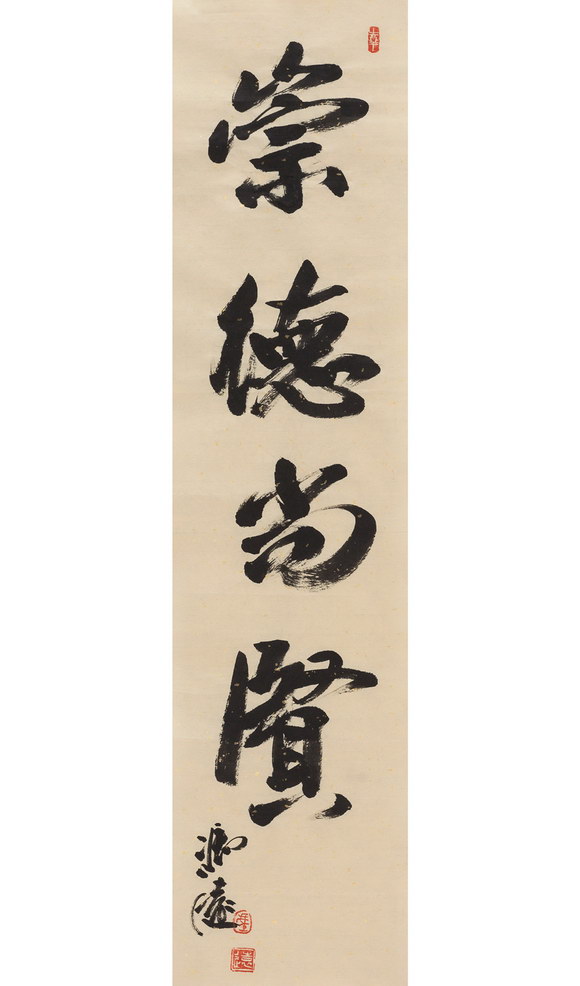 崇德尚賢
馮遠